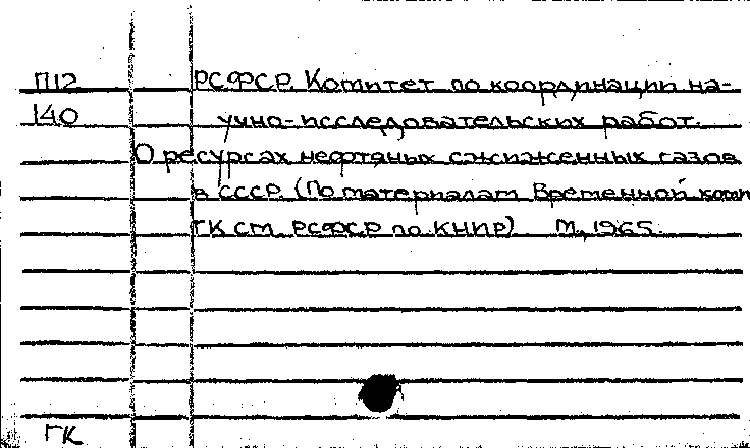 П12 РСФСР. Комитет по координации на-
140 учно-исследовательских работ.
О ресурсах нефтяных сжиженных газов
в СССР. (По материалам Временной коми
ГК СМ РСФСР по КНИР) М., 1965.
ГК